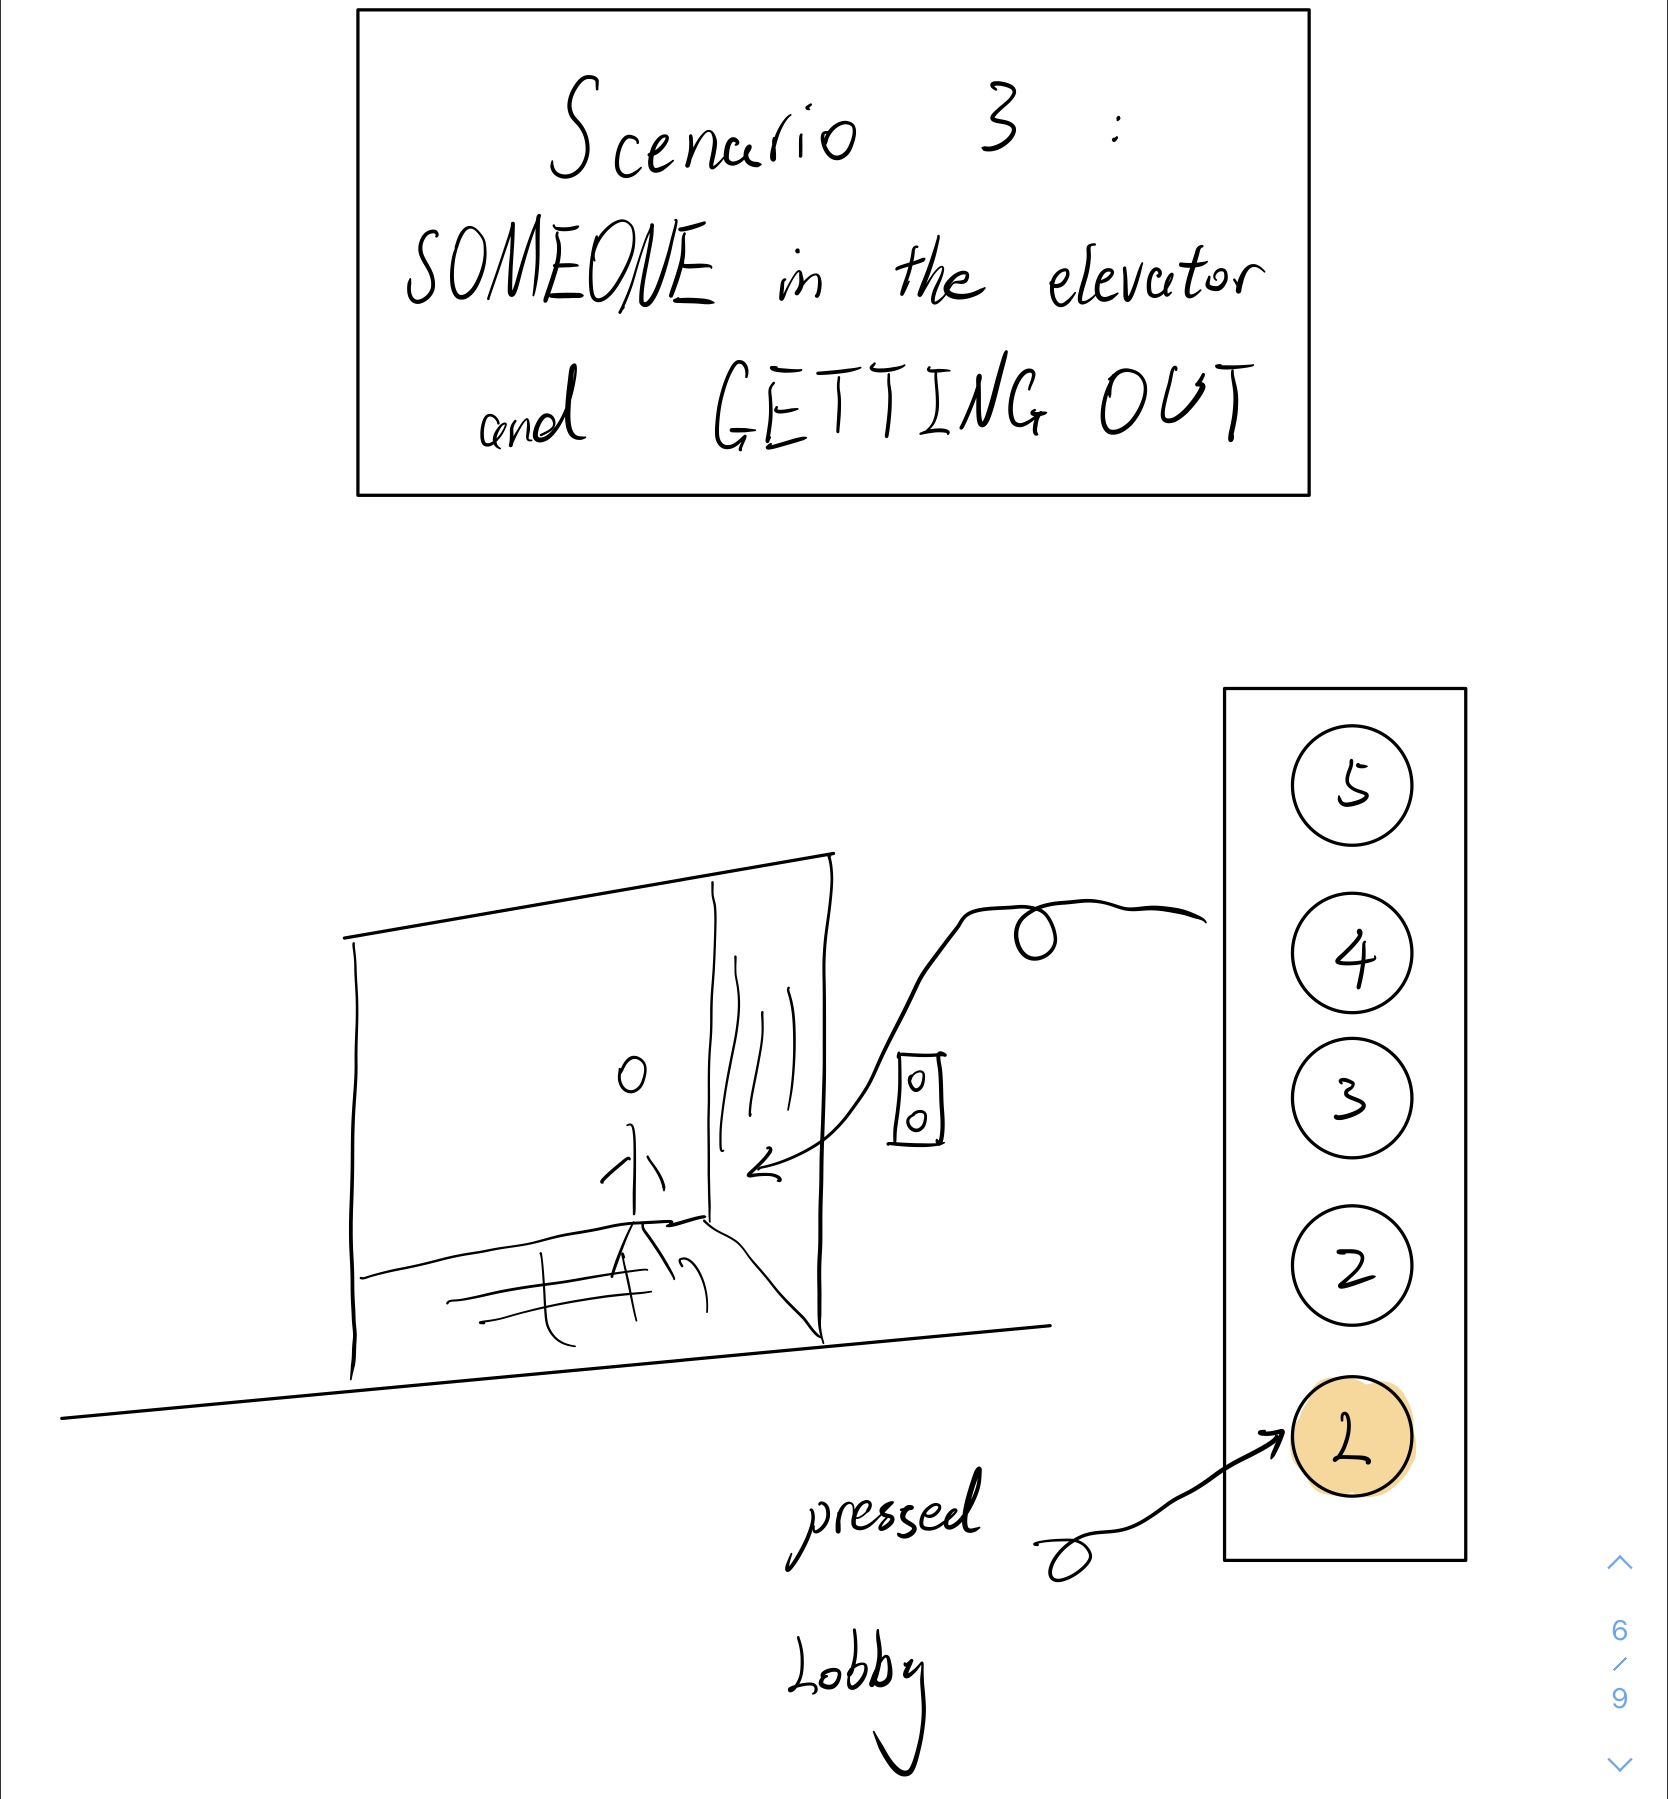 Scenario 3 :
SOMEONE in the elevator
and GETTING OUT
5
4
3
2
L
pressed
Lobby
6
/
9